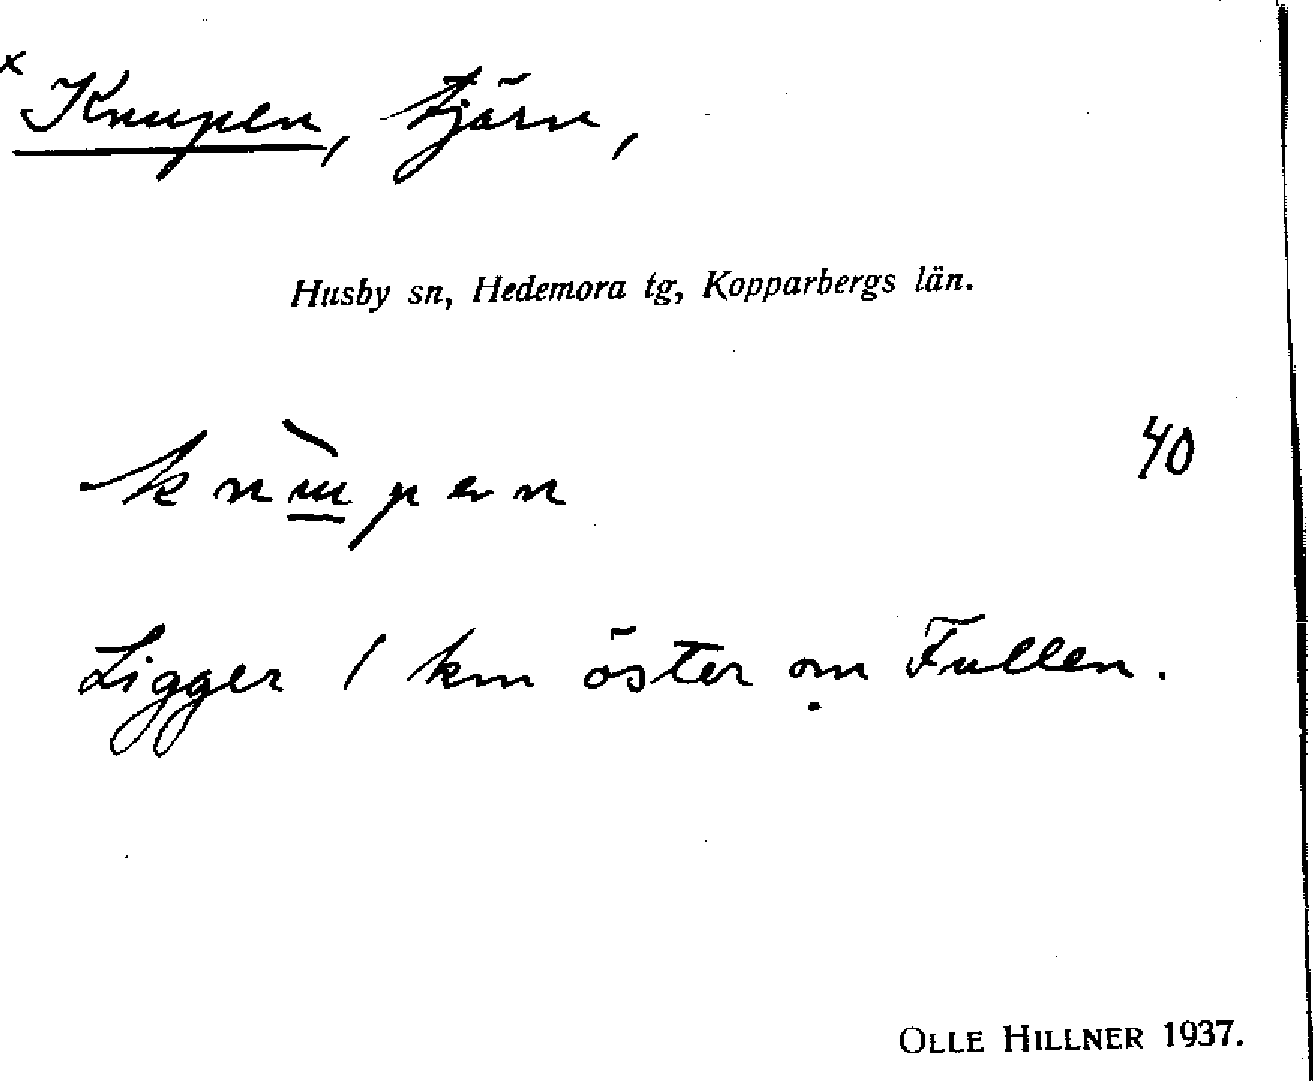 x Knupen, tjärn,
Husby sn, Hedemora tg, Kopparbergs län.
knùpen 40
Ligger 1 km öster om Fullen.
OLLE HILLNER 1937.